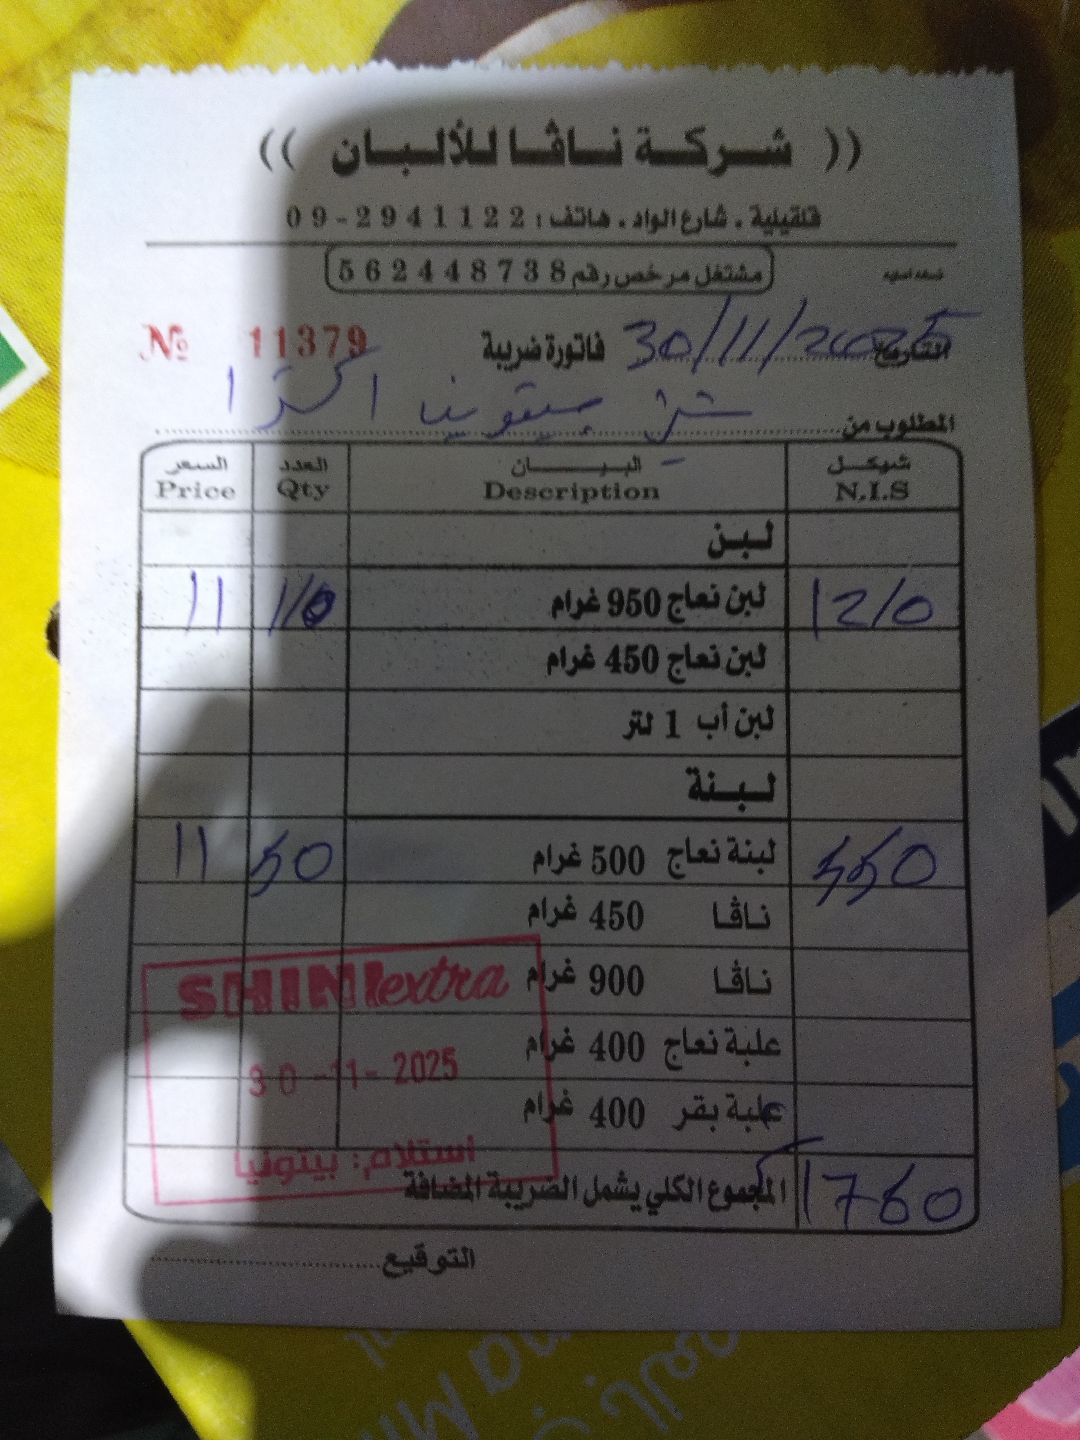 (( شركة ناڤا للألبان ))
قلقيلية . شارع الواد . هاتف : 2941122-09
مشتغل مرخص رقم 562448738
التاريخ 30/11/2025 فاتورة ضريبة № 11379
المطلوب من شني بيتونيا اكسترا
شيكل البيـــان العدد السعر
N.I.S Description Qty Price
لبن
1210 لبن نعاج 950 غرام 110 11
لبن نعاج 450 غرام
لبن أب 1 لتر
لبنة
550 لبنة نعاج 500 غرام 50 11
ناڤا 450 غرام
ناڤا 900 غرام
SHINI extra
علبة نعاج 400 غرام
30-11-2025
علبة بقر 400 غرام
استلام: بيتونيا
المجموع الكلي يشمل الضريبة المضافة 1760
التوقيع